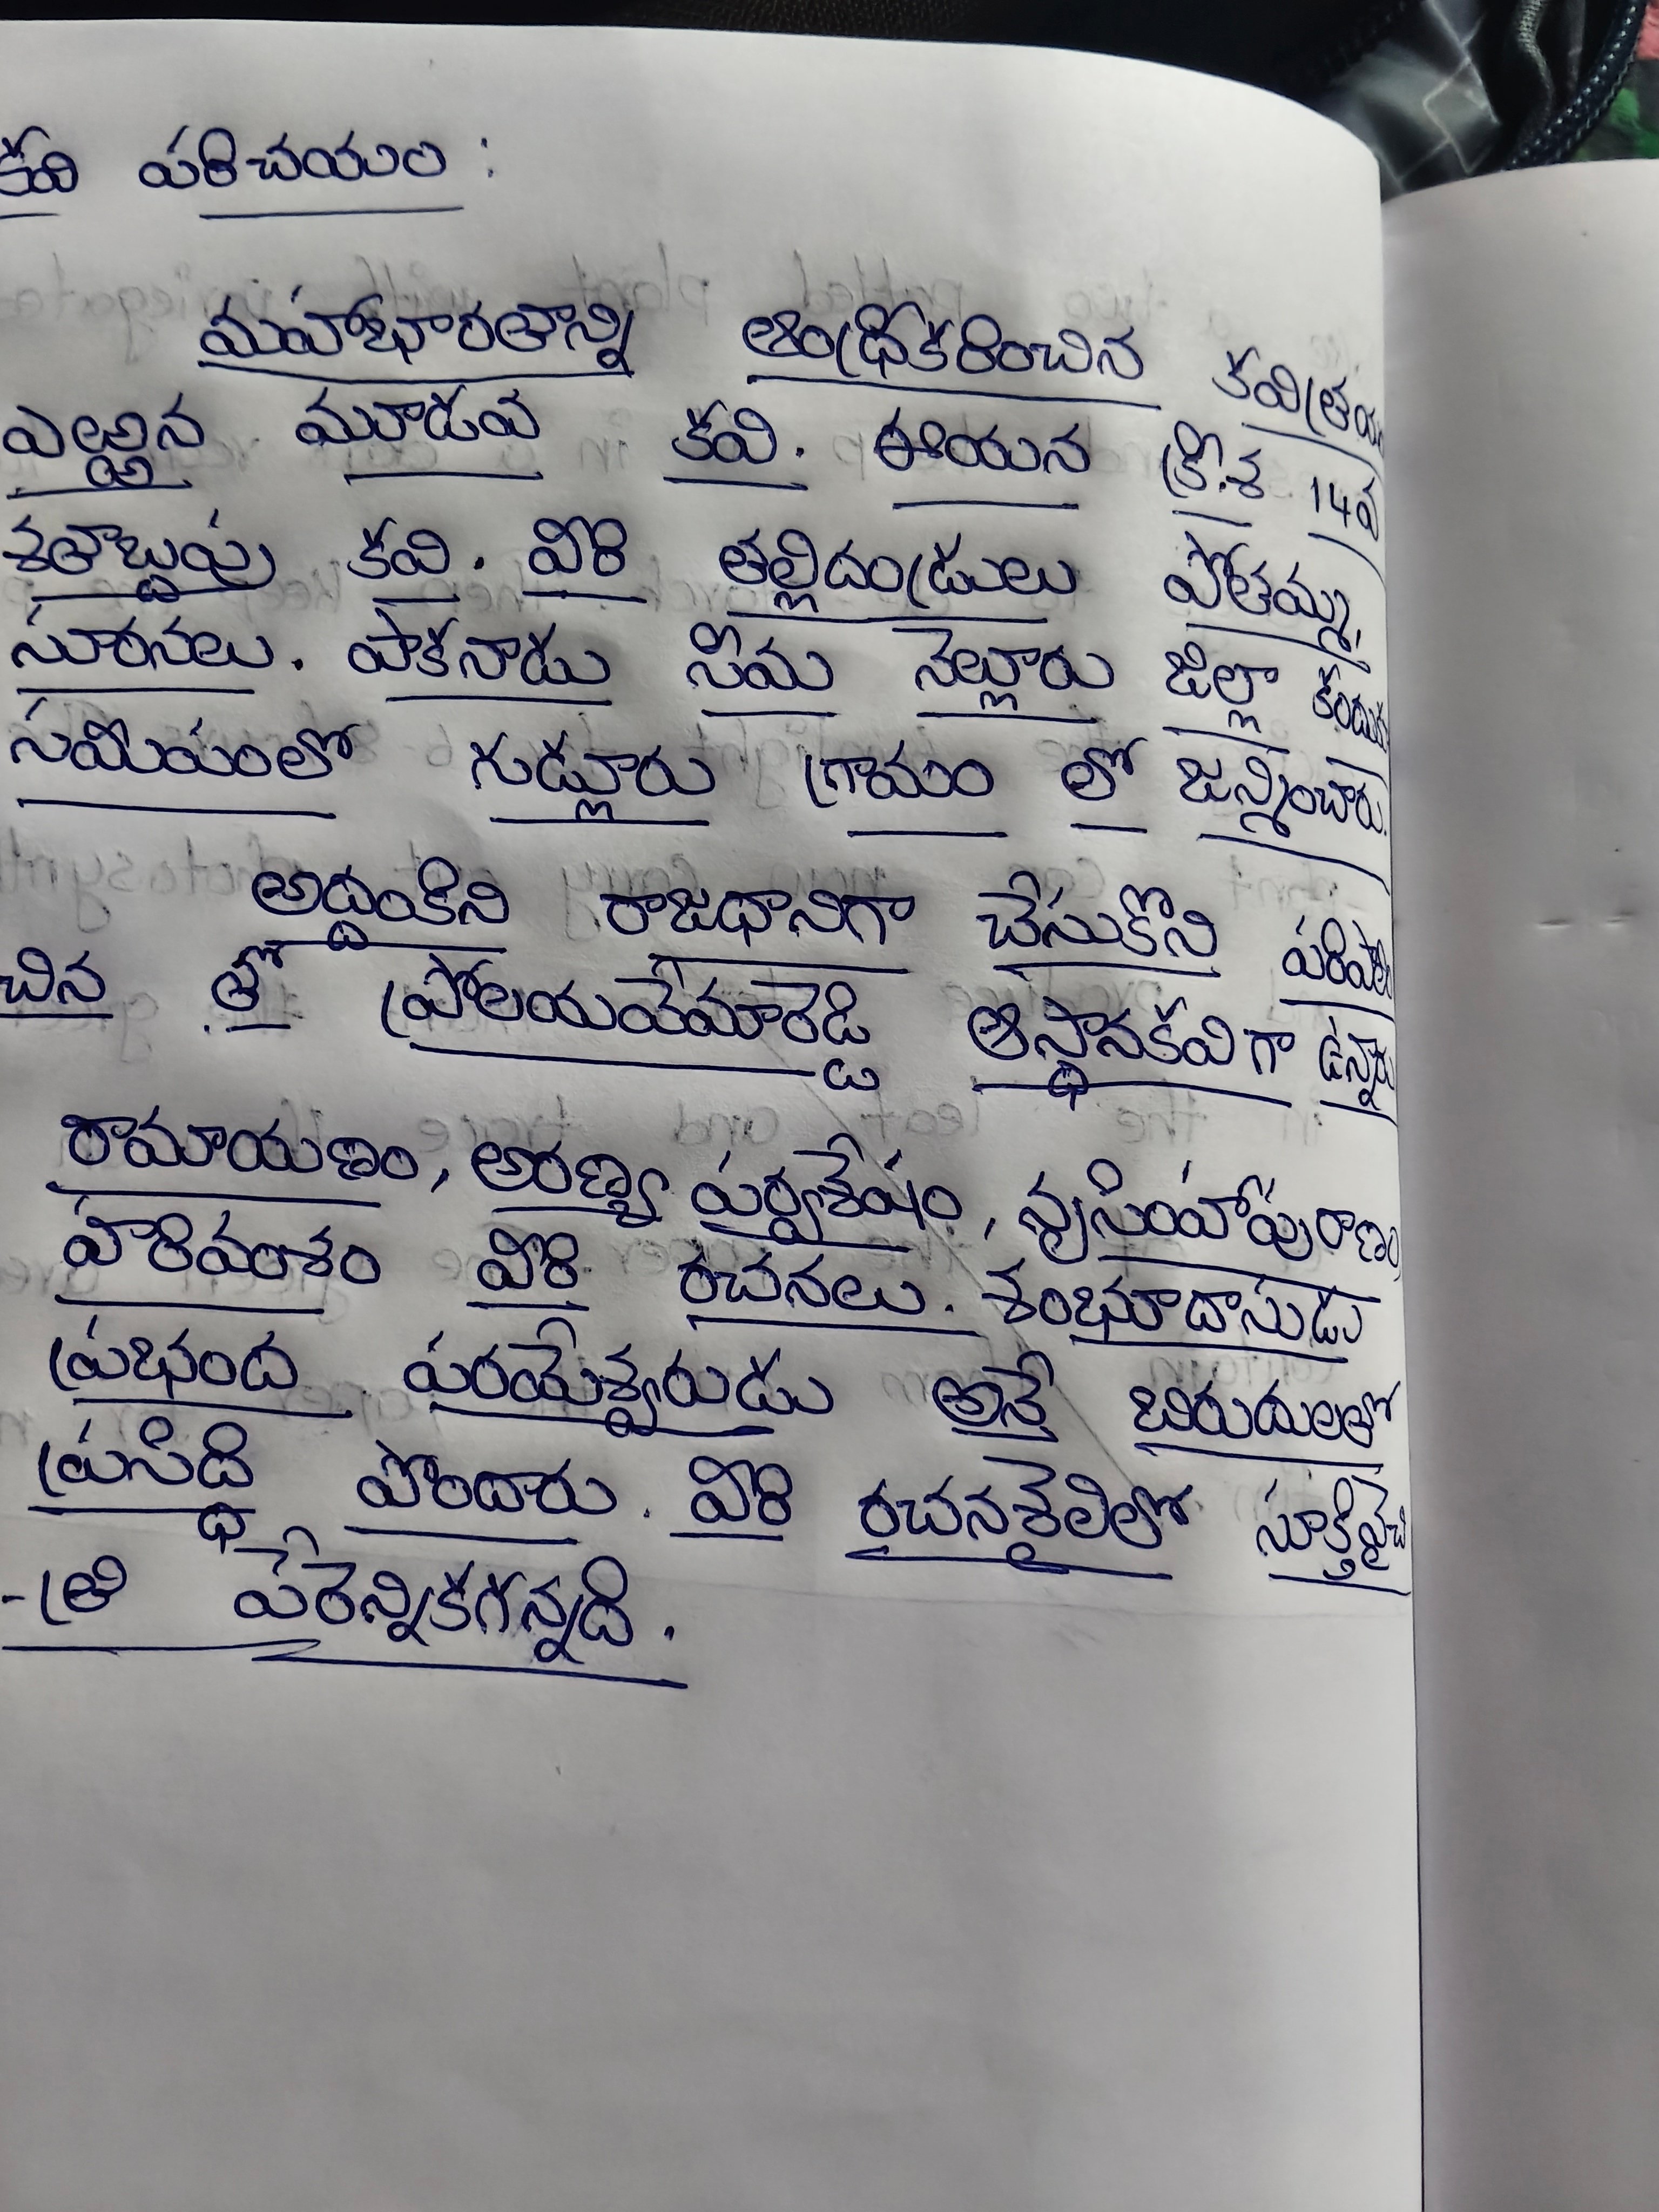 కవి పరిచయం :
మహాభారతాన్ని ఆంధ్రీకరించిన
ఎఱ్ఱన మూడవ కవి. ఈయన క్రీ.శ 14వ
శతాబ్దపు కవి. వీరి తల్లిదండ్రులు పోతమ్మ,
సూరనలు. పాకనాడు సీమ నెల్లూరు జిల్లా
సమీపంలో గుడ్లూరు గ్రామం లో జన్మించారు.
అద్దంకిని రాజధానిగా చేసుకొని
చిన తో ప్రోలయవేమారెడ్డి ఆస్థానకవిగా ఉన్నారు
రామాయణం, అరణ్య పర్వశేషం, నృసింహాపురాణం,
హరివంశం వీరి రచనలు. శంభూదాసుడు
ప్రభంద పరమేశ్వరుడు అనే బిరుదులతో
ప్రసిద్ధి పొందారు. వీరి రచనశైలిలో
-త్రి పేరెన్నికగన్నది.